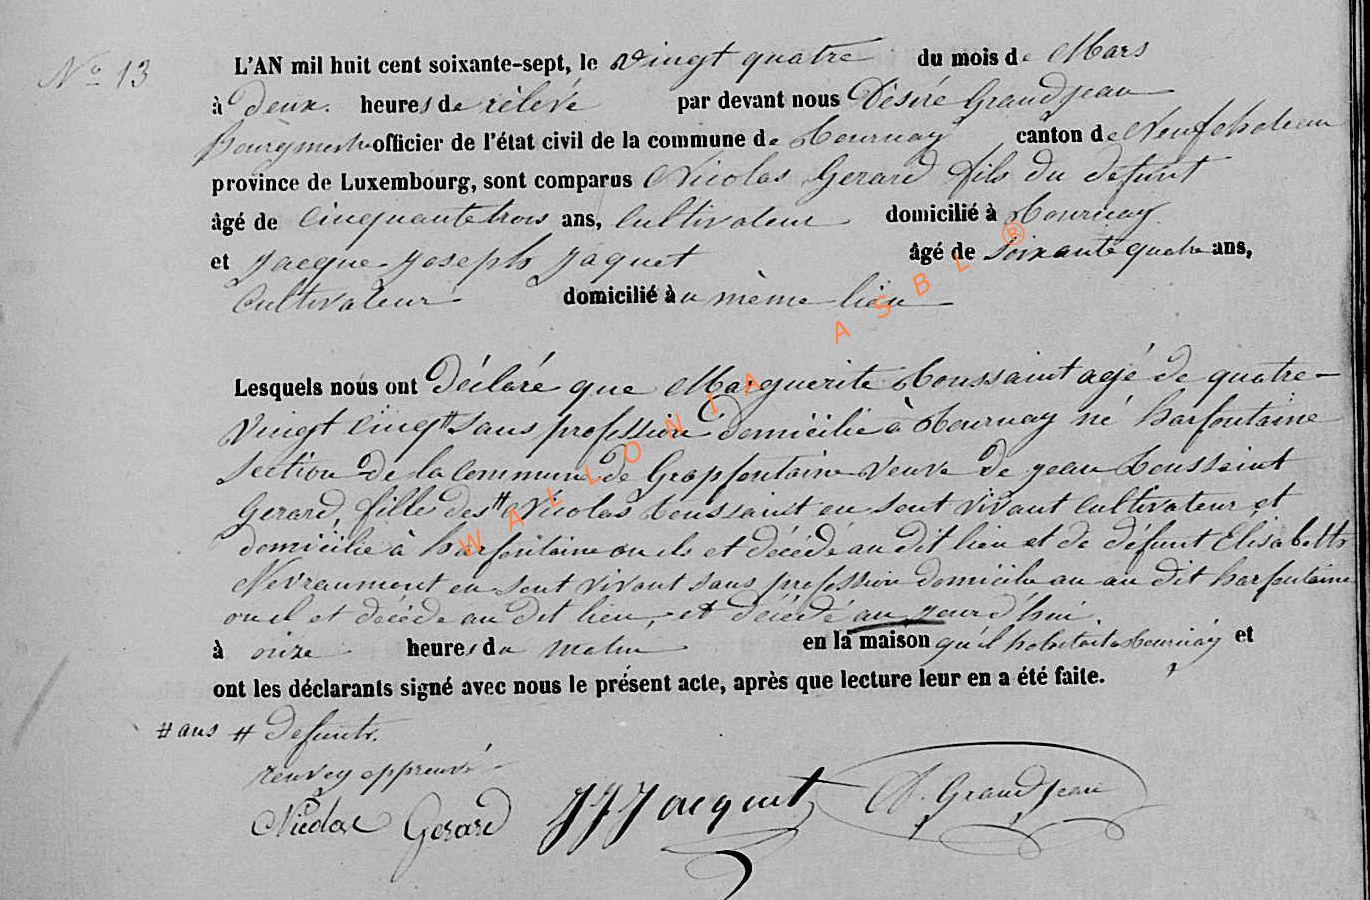 N° 13
L'AN mil huit cent soixante-sept, le vingt quatre du mois de Mars
à deux heures de rélévé par devant nous Désiré Grandjean
Bourgmestre officier de l'état civil de la commune de Tournay canton de Neufchateau
province de Luxembourg, sont comparus Nicolas Gerard fils du defunt
âgé de cinquante trois ans, cultivateur domicilié à Tournay
et Jacque Joseph Jaquet âgé de soixante quatre ans,
Cultivateur domicilié au même lieu
Lesquels nous ont déclaré que Marguerite Toussaint agé de quatre-
vingt cinq # sans profession domicilié à Tournay né harfontaine
section de la Commune de Grapfontaine veuve de jean toussaint
Gerard, fille des # Nicolas toussaint en sont vivant cultivateur et
domicilié à harfontaine ou ils et décédé au dit lieu et de défunt Elisabeth
Nevraumont en sont vivant sans profession domicilié au au dit harfontaine
ou il et décédé au dit lieu, et décédé au jourd'hui
à onze heures du matin en la maison qu'il habitait à Tournay et
ont les déclarants signé avec nous le présent acte, après que lecture leur en a été faite.
# ans # défunts.
renvoy approuvé
Nicolas Gerard JJ Jacquet D. Grandjean
WALLONIA ASBL ®